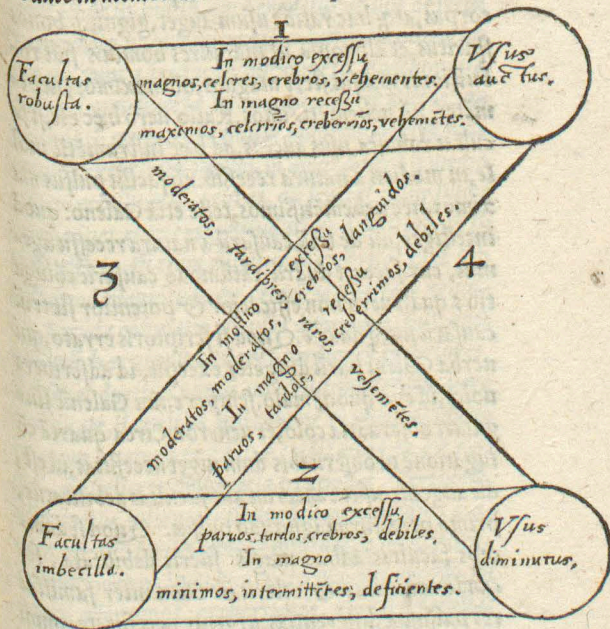 1
Facultas
robusta.
In modico excessu
magnos, celeres, crebros, vehementes.
In magno recessu
maxīmos, celerrīos, creberrīos, vehemētes.
Vsus
auctus.
moderatos, tardiores, raros, vehemētes.
3
4
In modico excessu
moderatos, moderatos, crebros, languidos.
In magno recessu
paruos, tardos, creberrimos, debiles.
2
Facultas
imbecilla.
In modico excessu
paruos, tardos, crebros, debiles.
In magno
minimos, intermittētes, deficientes.
Vsus
diminutus.